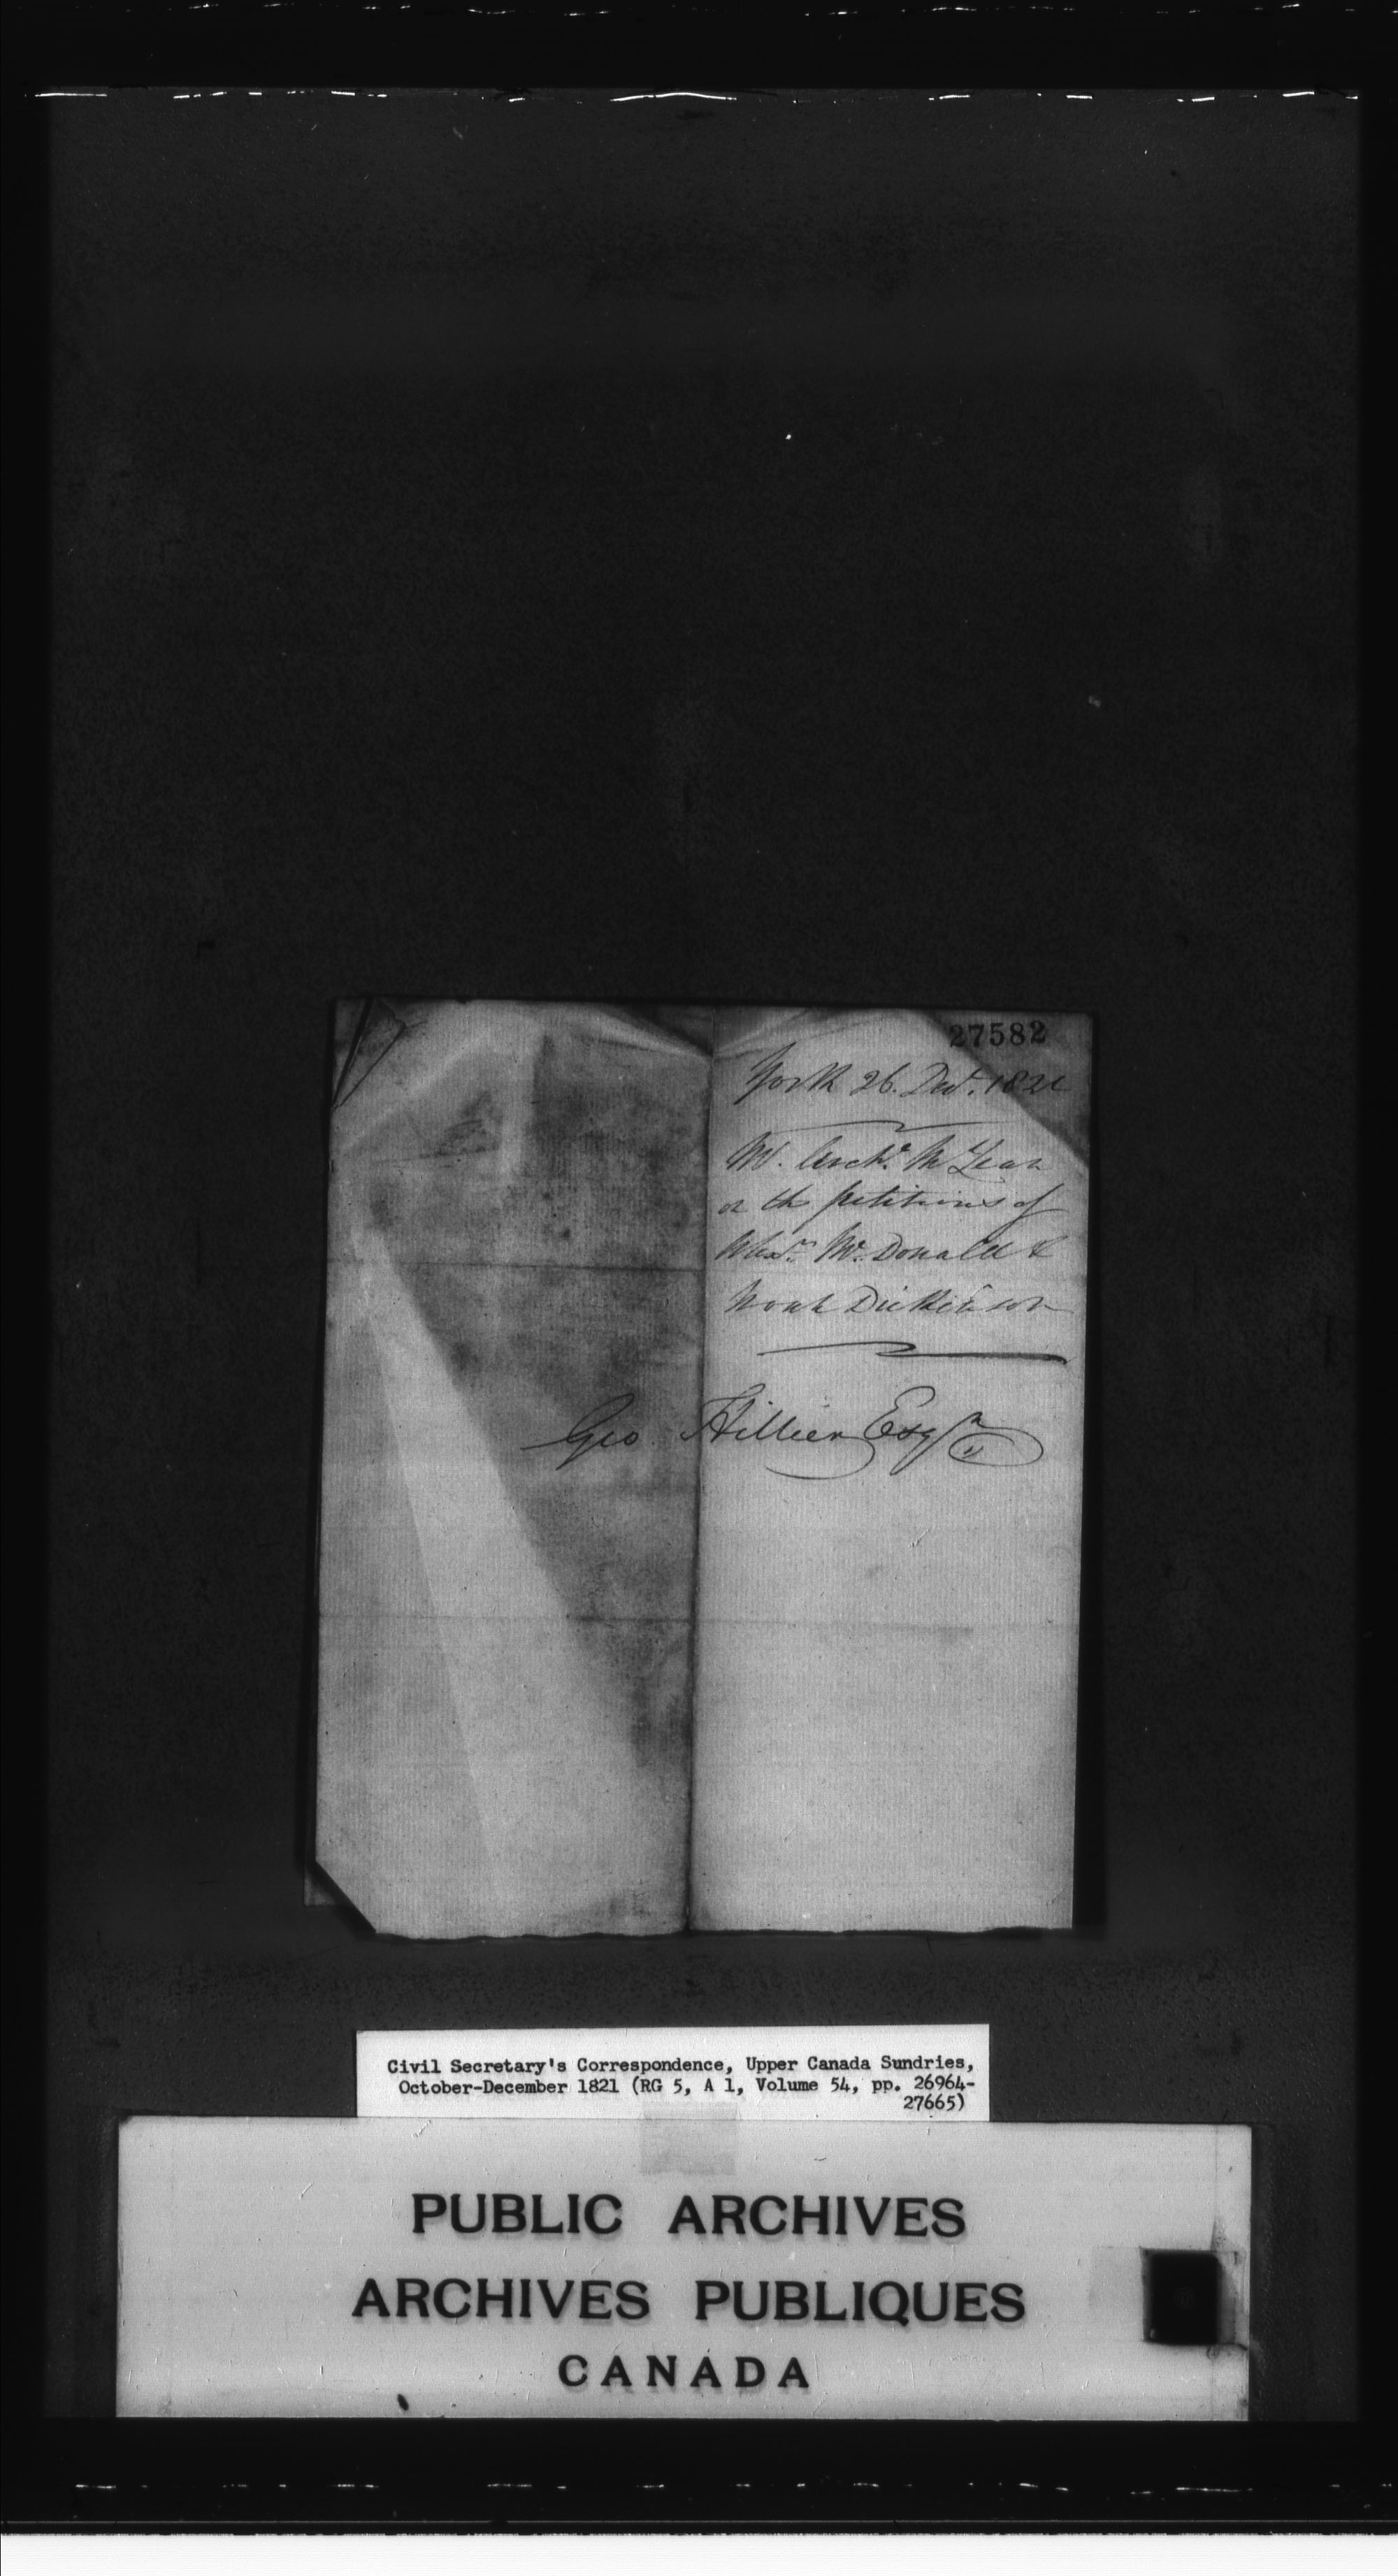 27582
York 26. Decr. 1821
Mr. Archd. McLean
on the petitions of
Alexr. McDonald &
Noah Dickinson
Geo Hillier Esqr
Civil Secretary's Correspondence, Upper Canada Sundries,
October-December 1821 (RG 5, A 1, Volume 54, pp. 26964-
27665)
PUBLIC ARCHIVES
ARCHIVES PUBLIQUES
CANADA